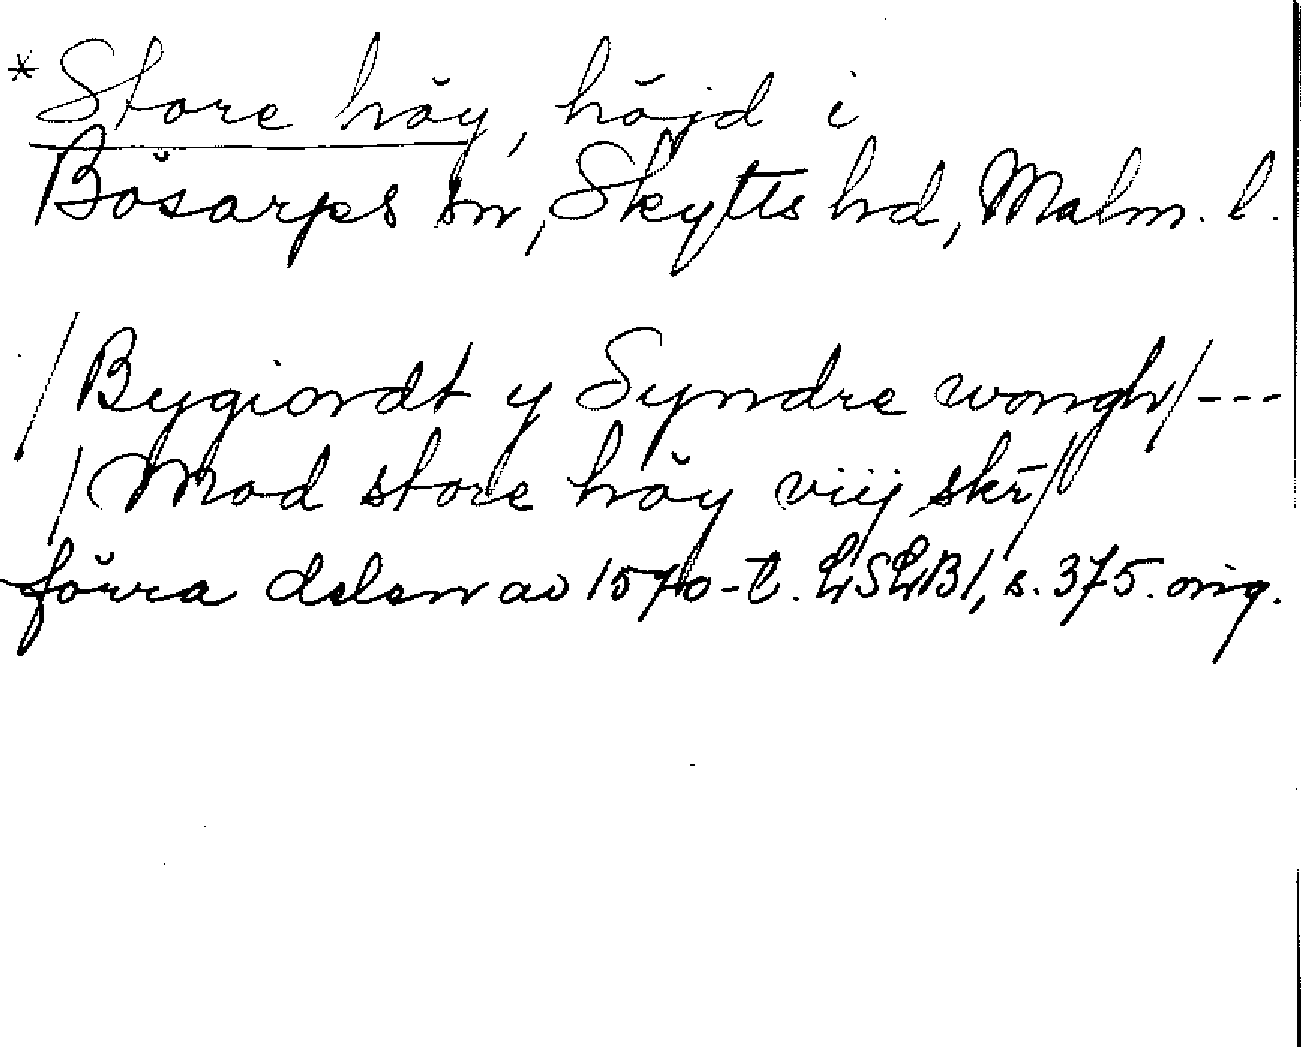 *Store höy, höjd i
Bösarps sn, Skytts hd, Malm. l.
/Bygiordt y Syndre wongh/---
/Mod store höy viij skr̄/
förra delen av 1570-t. LSLB1, s. 375. orig.